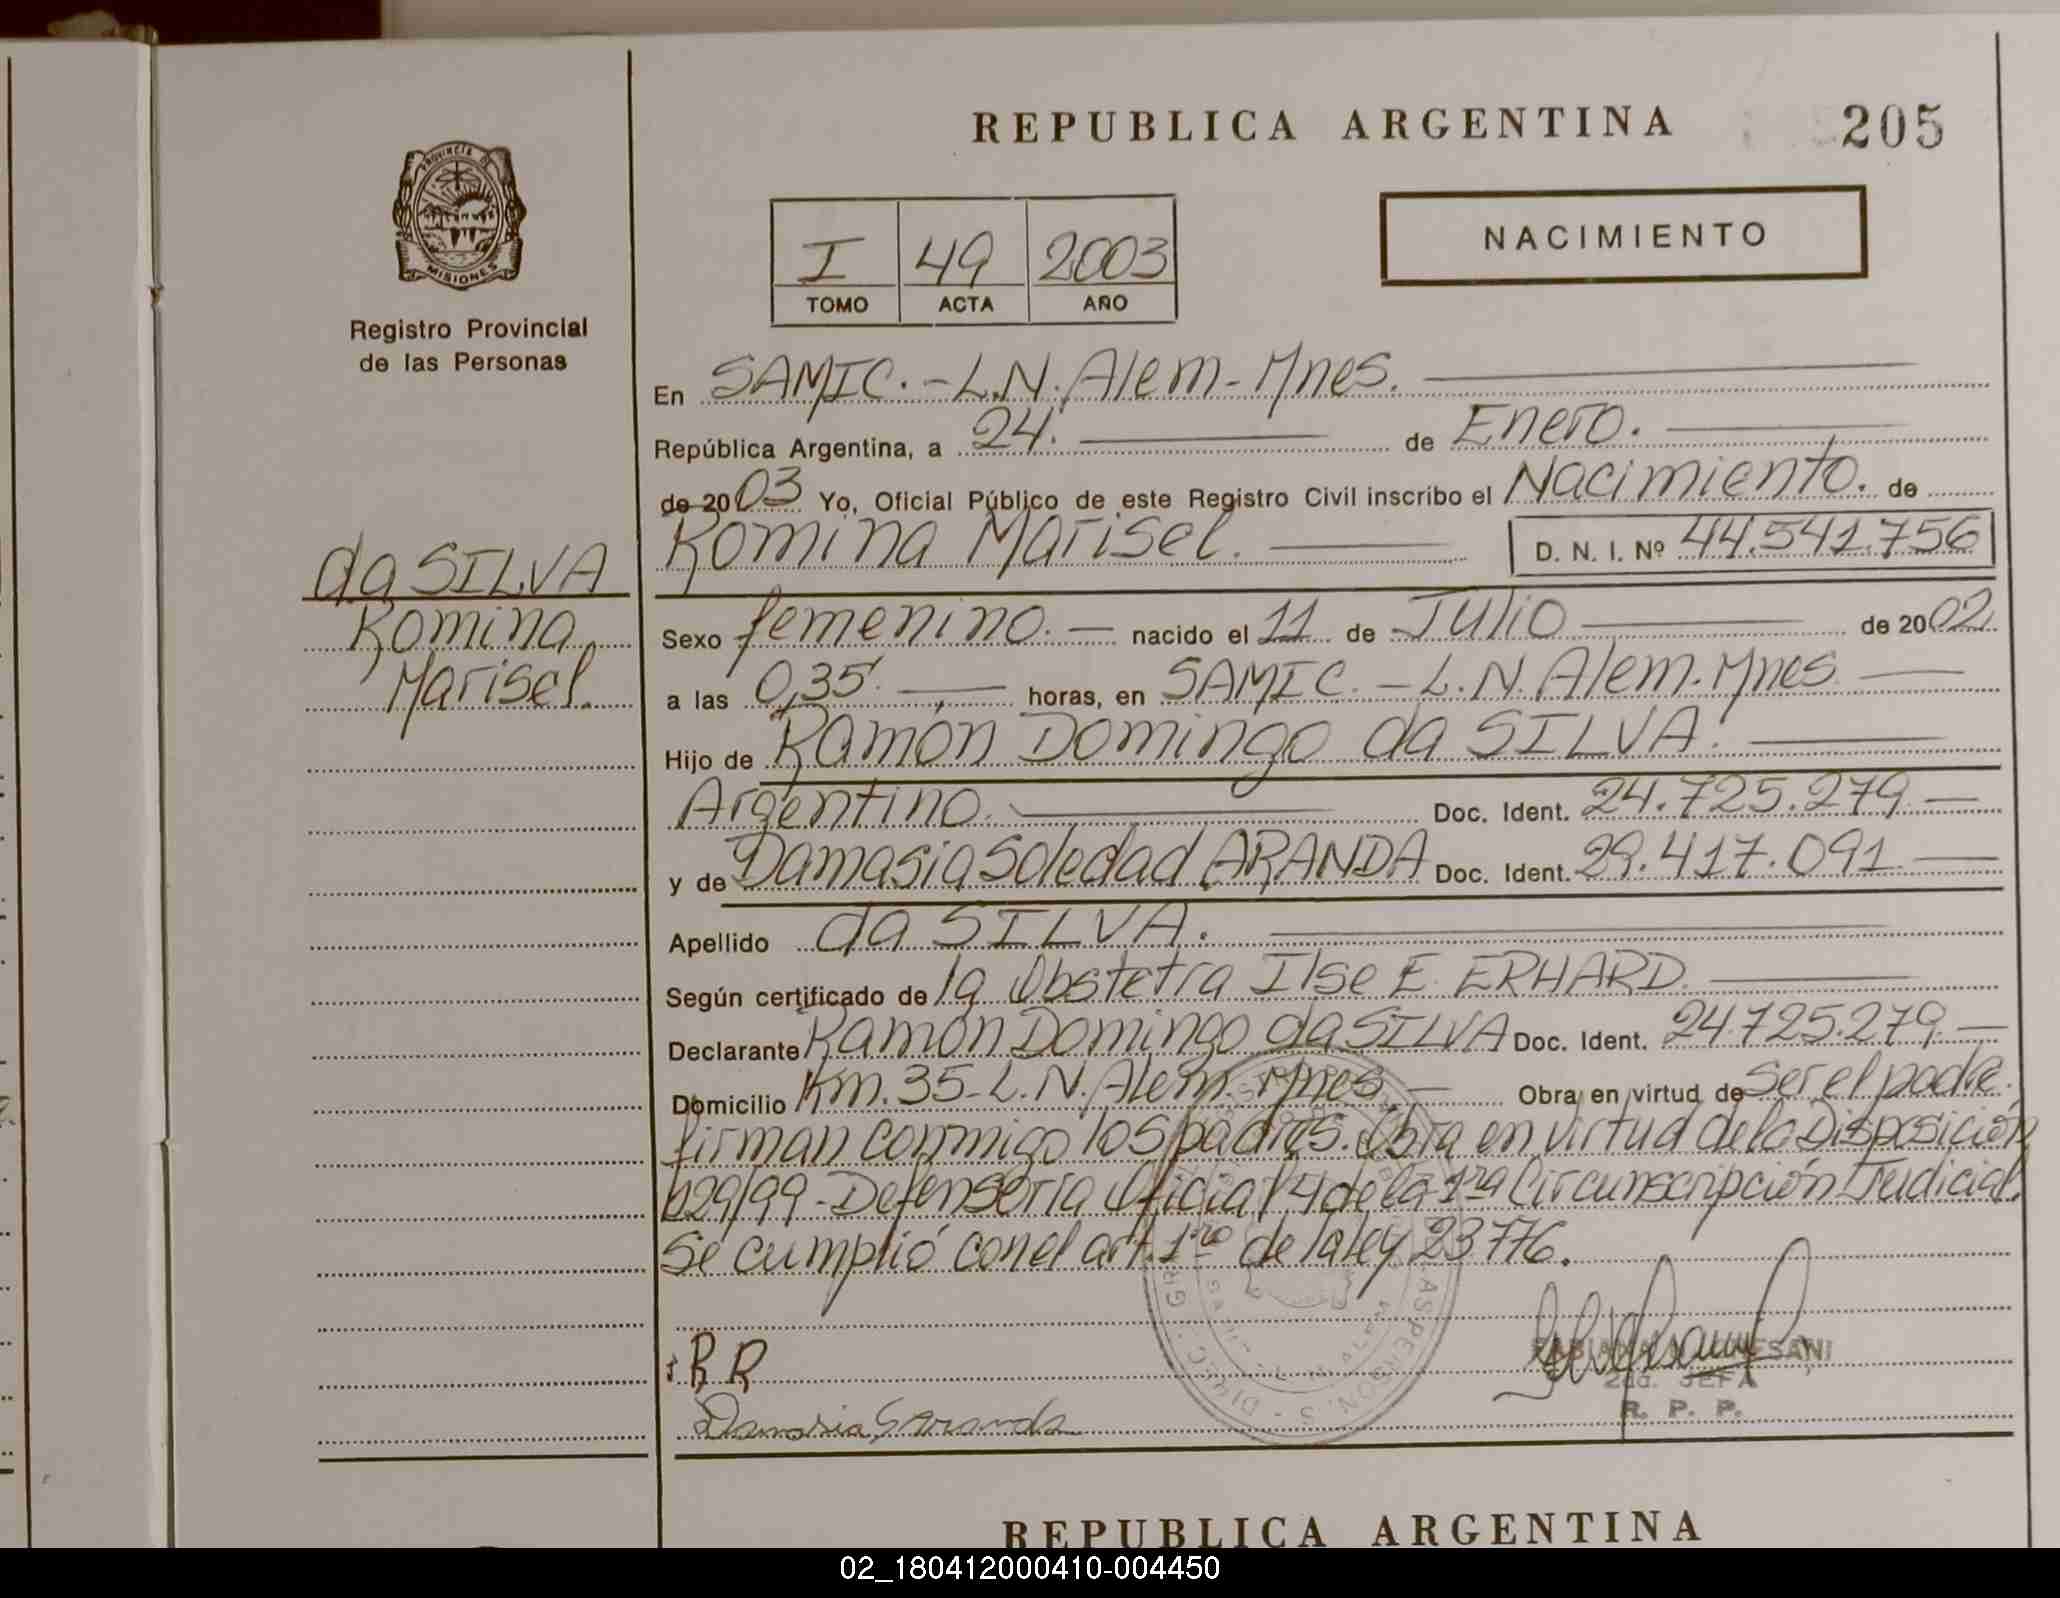 REPUBLICA ARGENTINA 205
PROVINCIA DE
MISIONES
Registro Provincial
de las Personas
I 49 2003
TOMO ACTA AÑO
NACIMIENTO
En SAMIC.-L.N.Alem-Mnes.
República Argentina, a 24. de Enero.
de 2003 Yo, Oficial Público de este Registro Civil inscribo el Nacimiento. de
Romina Marisel. D. N. I. Nº 44.541.756
da SILVA
Romina
Marisel.
Sexo femenino. nacido el 11 de Julio de 2002
a las 0,35'. horas, en SAMIC.-L.N.Alem.Mnes
Hijo de Ramón Domingo da SILVA.
Argentino. Doc. Ident. 24.725.279.
y de Damasia Soledad ARANDA Doc. Ident. 29.417.091.
Apellido da SILVA.
Según certificado de la Obstetra Ilse E. ERHARD.
Declarante Ramón Domingo da SILVA Doc. Ident. 24.725.279.
Domicilio Km.35-L.N.Alem.Mnes Obra en virtud de Ser el padre.
firman conmigo los padres. Obra en virtud de la Disposición
629/99-Defensoría Oficial 4 de la 1ra Circunscripción Judicial.
Se cumplió con el art. 1ro de la ley 23.776.
R R
Damasia S Aranda
2da. JEFA
R. P. P.
REPUBLICA ARGENTINA
02_180412000410-004450